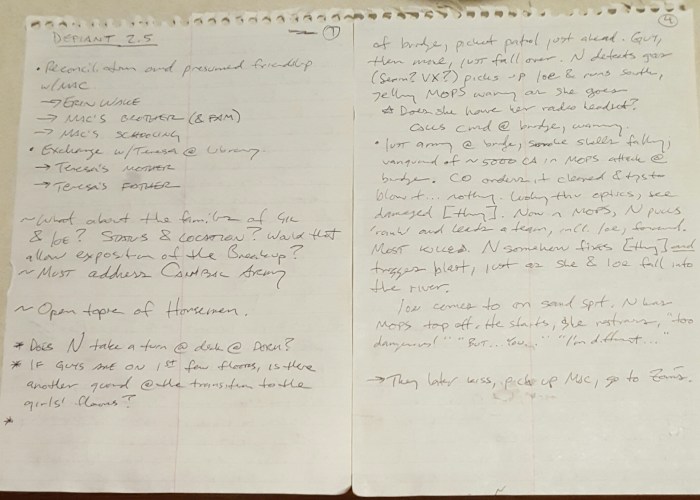 DEFIANT 2.5
①
• Reconciliation and presumed friendship
w/MAC.
→ ERIN WAKE
→ MAC'S BROTHER (& FAM)
→ MAC'S SCHOOLING
• Exchange w/Teresa @ library.
→ TERESA'S MOTHER
→ TERESA'S FATHER
~ What about the families of
& JOE? STATUS & LOCATION? Would that
allow exposition of the Breakup?
~ MOST address CANTBAC ARMY
~ Open topic of Horsemen.
* Does N take a turn @ desk @ DORM?
* IF GUYS ARE ON 1st few floors, is there
another guard @ the transition to the
girls' floors?
*
④
of bridge, picket patrol just ahead. Guy,
then more, just fall over. N detects gas
(Sarin? VX?) picks up Joe & runs south,
yelling MOPS warning as she goes
* Does she have her radio headset?
Calls cmd @ bridge, warning.
• Just army @ bridge, smoke shells falling,
vanguard of ~5000 CA in MOPS attack @
bridge. CO orders it cleared & tries to
blow it... nothing. Looking thru optics, see
damaged [thg]. Now in MOPS, N pulls
rank and leads a team, incl. Joe, forward.
Most killed. N somehow fixes [thg] and
triggers blast, just as she & Joe fall into
the river.
Joe comes to on sand spit. N has
MOPS top off. He starts, she restrains, "too
dangerous!" "But... you..." "I'm different..."
→ They later kiss, pick up MAC, go to